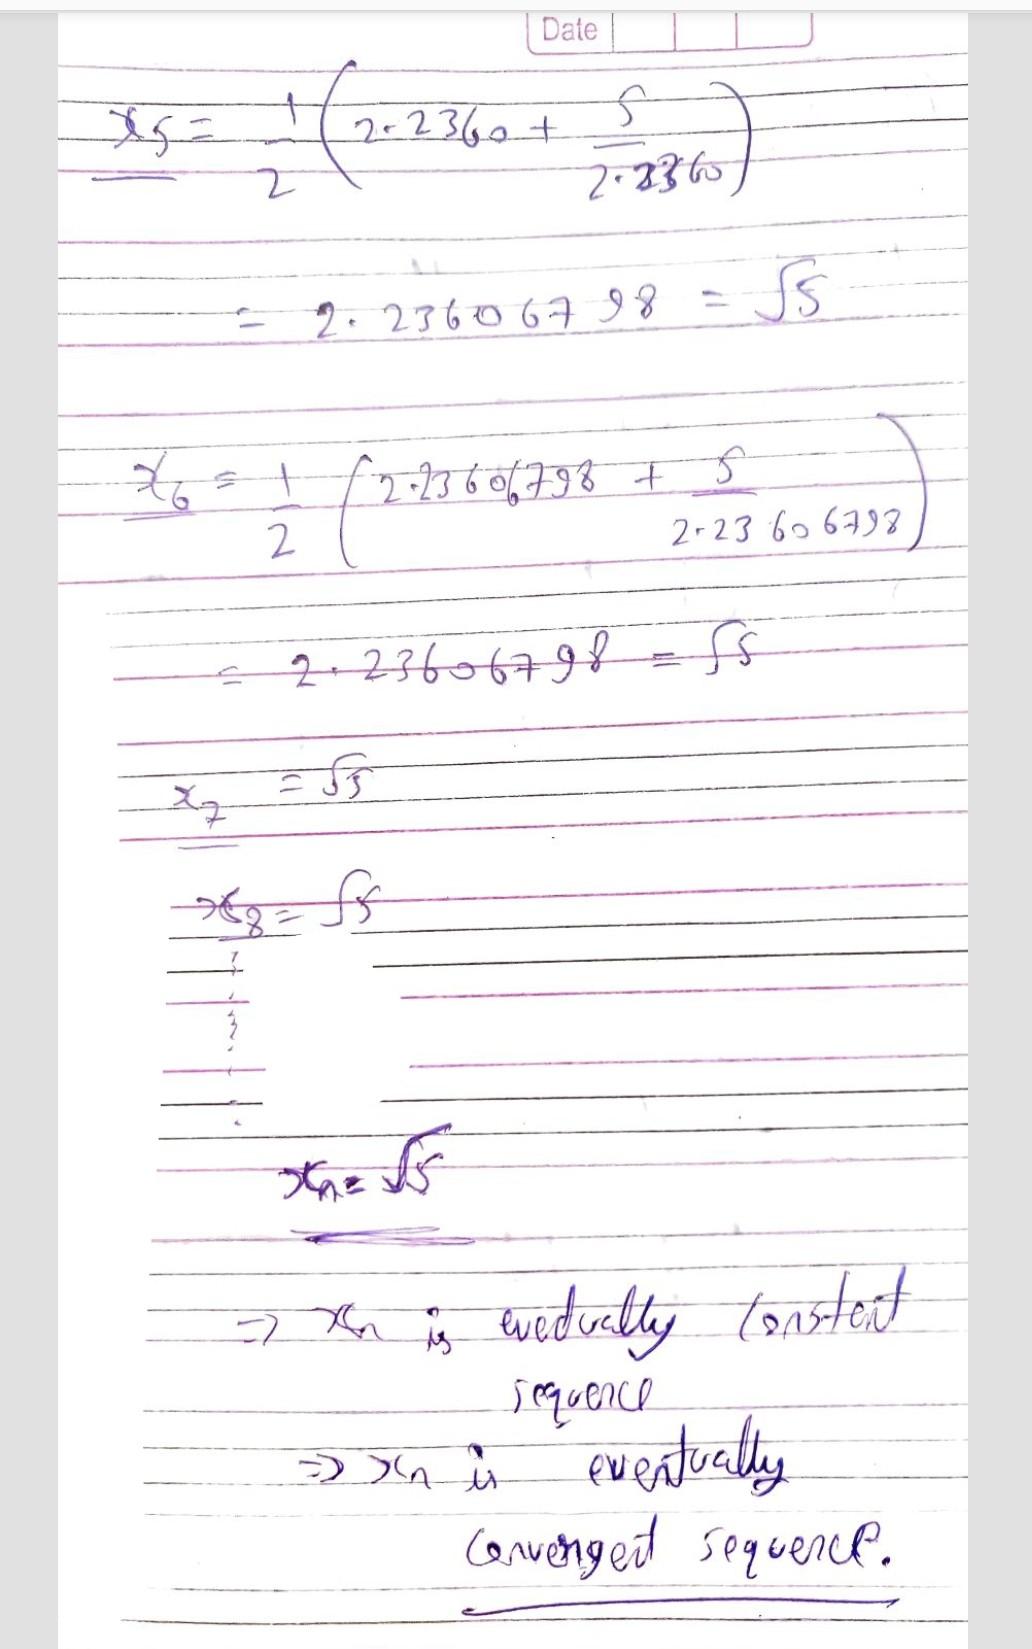 Date
x₅ = 1/2 (2.2360 + 5/2.2360)
= 2.23606798 = √5
x₆ = 1/2 (2.23606798 + 5/2.23606798)
= 2.23606798 = √5
x₇ = √5
x₈ = √5
xₙ = √5
⇒ xₙ is evedually constent
sequence
⇒ xₙ is eventually
convergent sequence.